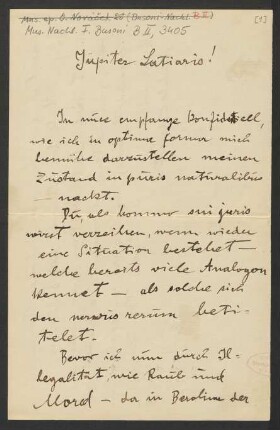 Mus. ep. O. Novaček 28 (Busoni-Nachl. B II)
Mus. Nachl. F. Busoni B II, 3405
[1]
Jupiter Latiaris!
In nuce empfange konfidentiell,
wie ich in optima forma mich
bemühe darzustellen meinen
Zustand in puris naturalibus
— nackt.
Du, als homme sui juris
wirst verzeihen, wenn wieder
eine Situation besteht —
welche bereits viele Analogon
kennet — als solche sich
den nervus rerum beti-
telet.
Bevor ich nun durch Il-
legalität, wie Raub und
Mord — da in Berolina der